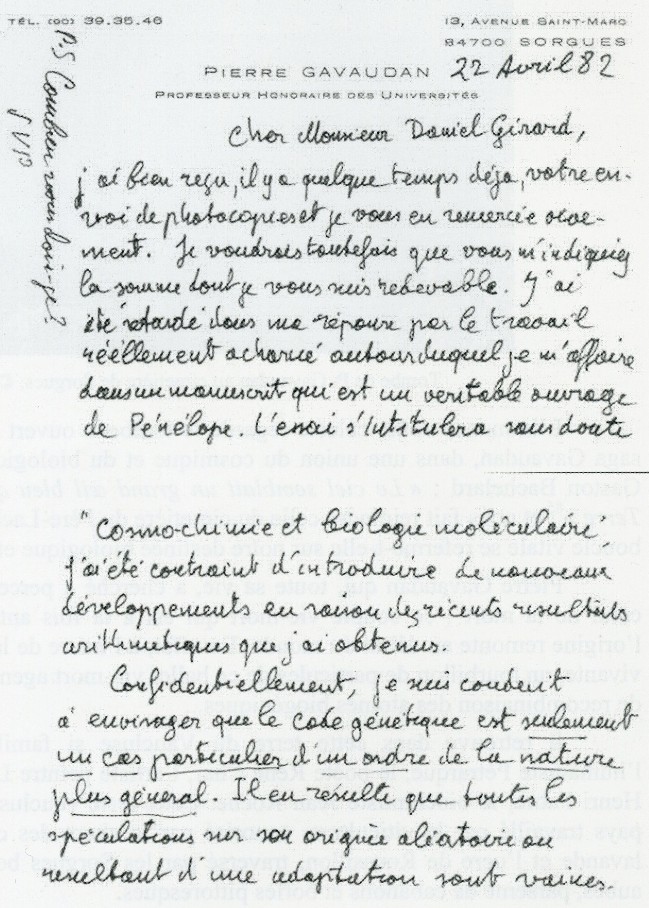 TÉL. (90) 39.35.46
13, AVENUE SAINT-MARC
84700 SORGUES
PIERRE GAVAUDAN
22 Avril 82
PROFESSEUR HONORAIRE DES UNIVERSITÉS
P.S Combien vous dois-je?
SVP
Cher Monsieur Daniel Girard,
j'ai bien reçu, il y a quelque temps déjà, votre en-
voi de photocopies et je vous en remercie vive-
ment. Je voudrais toutefois que vous m'indiquiez
la somme dont je vous suis redevable. J'ai
été retardé dans ma réponse par le travail
réellement acharné autour duquel je m'affaire
dans un manuscrit qui est un véritable ouvrage
de Pénélope. L'essai s'intitulera sans doute
"Cosmo-chimie et biologie moléculaire.
j'ai été contraint d'introduire de nouveaux
développements en raison des récents resultats
arithmétiques que j'ai obtenus.
Confidentiellement, je suis conduit
à envisager que le code génétique est seulement
un cas particulier d'un ordre de la nature
plus général. Il en résulte que toutes les
spéculations sur son origine aléatoire ou
resultant d'une adaptation sont vaines.